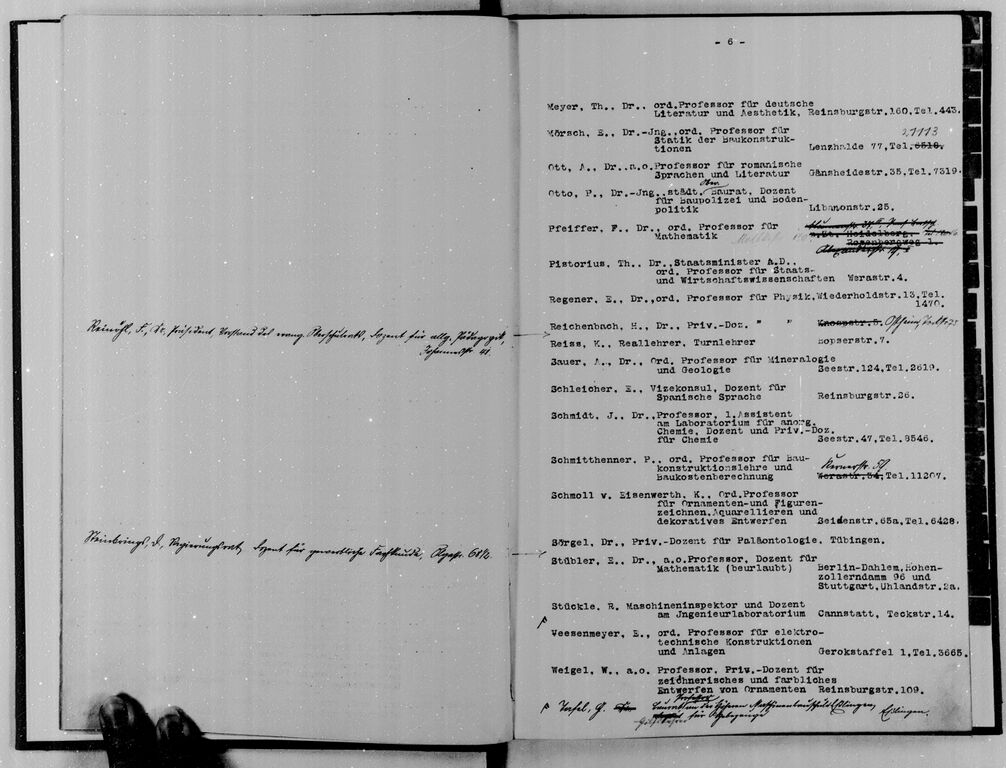 Reinöhl, F., Dr., Präsident, Vorstand des evang. Oberschulrats, Dozent für allg. Pädagogik,
Johannesstr. 41.
Regierungsrat, Dozent für gewerbliche Fachkunde,
- 6 -
Meyer, Th., Dr., ord.Professor für deutsche
Literatur und Aesthetik, Reinsburgstr.160,Tel.443.
21113
Mörsch, E., Dr.-Jng.,ord. Professor für
Statik der Baukonstruk-
tionen Lenzhalde 77,Tel.6518.
Ott, A., Dr.,a.o.Professor für romanische
Sprachen und Literatur Gänsheidestr.35,Tel.7319.
Ober
Otto, P., Dr.-Jng.,städt. Baurat, Dozent
für Baupolizei und Boden-
politik Libanonstr.25.
Pfeiffer, F., Dr., ord. Professor für
Mathematik z.Zt. Heidelberg,
Rosenbergweg 1.
Pistorius, Th., Dr.,Staatsminister A.D.,
ord. Professor für Staats-
und Wirtschaftswissenschaften Werastr.4.
Regener, E., Dr.,ord. Professor für Physik,Wiederholdstr.13,Tel.
1470.
Reichenbach, H., Dr., Priv.-Doz. " " Knospstr.8.
Reiss, K., Reallehrer, Turnlehrer Bopserstr.7.
Sauer, A., Dr., Ord. Professor für Mineralogie
und Geologie Seestr.124,Tel.2619.
Schleicher, E., Vizekonsul, Dozent für
Spanische Sprache Reinsburgstr.26.
Schmidt, J., Dr.,Professor, 1.Assistent
am Laboratorium für anorg.
Chemie, Dozent und Priv.-Doz.
für Chemie Seestr.47,Tel.8546.
Schmitthenner, P., ord. Professor für Bau-
konstruktionslehre und Kernerstr. 59
Baukostenberechnung Werastr.34,Tel.11207.
Schmoll v. Eisenwerth, K., Ord.Professor
für Ornamenten-und Figuren-
zeichnen,Aquarellieren und
dekoratives Entwerfen Seidenstr.65a,Tel.6428.
Sörgel, Dr., Priv.-Dozent für Paläontologie, Tübingen.
Stübler, E., Dr., a.o.Professor, Dozent für
Mathematik (beurlaubt) Berlin-Dahlem,Hohen-
zollerndamm 96 und
Stuttgart,Uhlandstr.2a.
Stückle, R. Maschineninspektor und Dozent
am Jngenieurlaboratorium Cannstatt, Teckstr.14.
Veesenmeyer, E., ord. Professor für elektro-
technische Konstruktionen
und Anlagen Gerokstaffel 1,Tel.3665.
Weigel, W., a.o. Professor, Priv.-Dozent für
zeichnerisches und farbliches
Entwerfen von Ornamenten Reinsburgstr.109.
Professor
Baurat an der höheren Maschinenbauschule Eßlingen,
für Eßlingen.